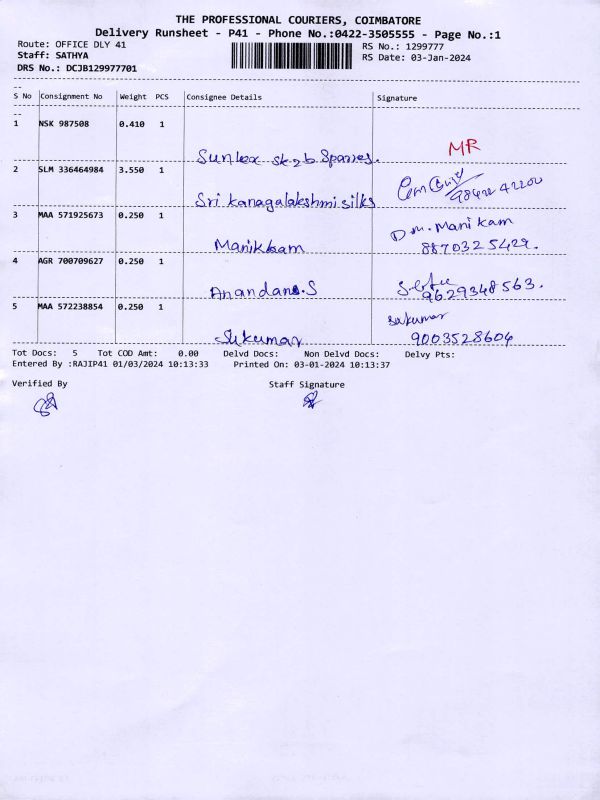 THE PROFESSIONAL COURIERS, COIMBATORE
Delivery Runsheet - P41 - Phone No.:0422-3505555 - Page No.:1
Route: OFFICE DLY 41
RS No.: 1299777
Staff: SATHYA
RS Date: 03-Jan-2024
DRS No.: DCJB129977701
S No Consignment No Weight PCS Consignee Details Signature
1 NSK 987508 0.410 1
MR
Sunlex Sk2b Sparres.
2 SLM 336464984 3.550 1
Sri kanagalakshmi silks
3 MAA 571925673 0.250 1
Dm. Manikam
Manikkam 8870325429.
4 AGR 700709627 0.250 1
Anandans.S 9629348563.
5 MAA 572238854 0.250 1
Sukumar
Sukumar 9003528604
Tot Docs: 5 Tot COD Amt: 0.00 Delvd Docs: Non Delvd Docs: Delvy Pts:
Entered By :RAJIP41 01/03/2024 10:13:33 Printed On: 03-01-2024 10:13:37
Verified By Staff Signature